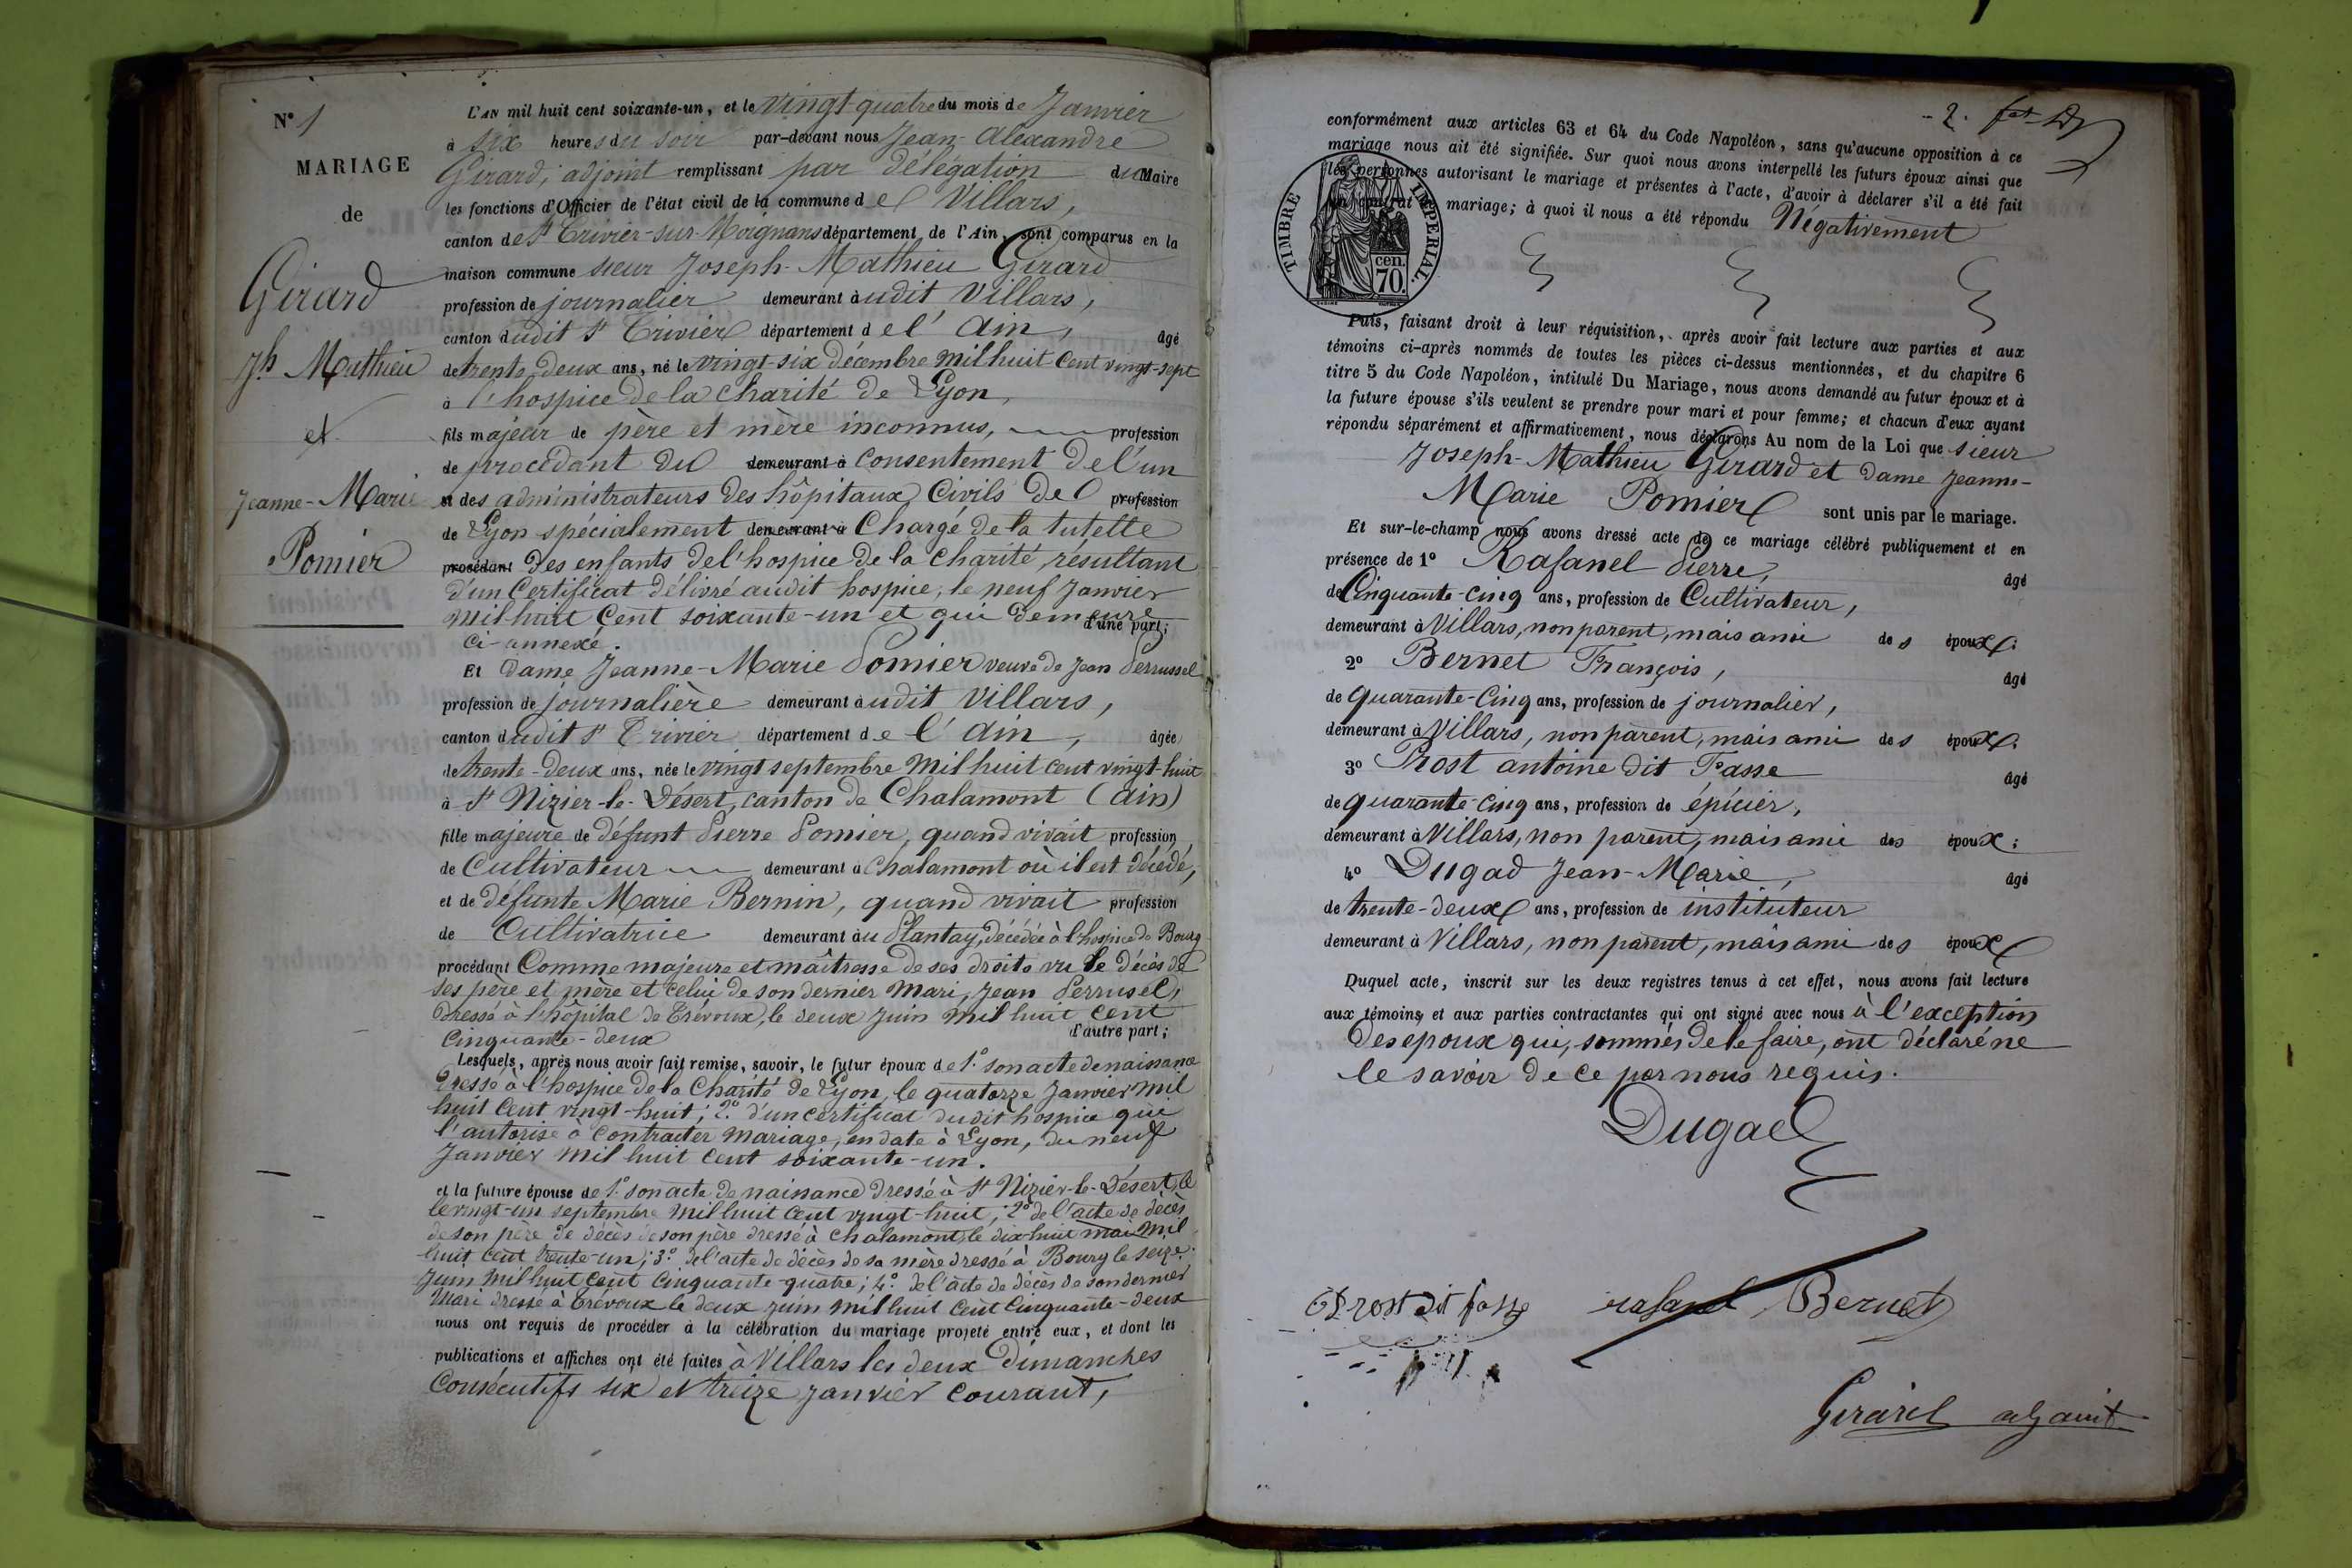 N° 1
MARIAGE
de
Girard
Jh Mathieu
et
Jeanne-Marie
Pomier
L'AN mil huit cent soixante-un, et le vingt-quatre du mois de Janvier
à six heures du soir par-devant nous Jean-Alexandre
Girard, adjoint remplissant par délégation du Maire
les fonctions d'Officier de l'état civil de la commune de Villars,
canton de St Trivier-sur-Moignans département de l'Ain, sont comparus en la
maison commune sieur Joseph-Mathieu Girard
profession de journalier demeurant audit Villars,
canton dudit St Trivier département de l'Ain, âgé
de trente-deux ans, né le vingt-six décembre mil huit cent vingt-sept
à l'hospice de la charité de Lyon,
fils majeur de père et mère inconnus, profession
de procédant du demeurant à consentement de l'un
et des administrateurs des hôpitaux civils de profession
de Lyon spécialement demeurant à chargé de la tutelle
procédant des enfants de l'hospice de la charité, résultant
d'un certificat délivré audit hospice, le neuf janvier
mil huit cent soixante-un et qui demeure
ci-annexé. d'une part;
Et dame Jeanne-Marie Pomier veuve de Jean Perrussel
profession de journalière demeurant audit Villars,
canton dudit St Trivier département de l'Ain, âgée
de trente-deux ans, née le vingt septembre mil huit cent vingt-huit
à St Nizier-le-Désert, canton de Chalamont (Ain)
fille majeure de défunt Pierre Pomier, quand vivait profession
de cultivateur demeurant à Chalamont où il est décédé,
et de défunte Marie Bernin, quand vivait profession
de Cultivatrice demeurant au Plantay, décédée à l'hospice de Bourg
procédant comme majeure et maîtresse de ses droits vu le décès de
ses père et mère et celui de son dernier mari, Jean Perrusel,
dressé à l'hôpital de Trévoux, le deux juin mil huit cent
cinquante-deux d'autre part;
Lesquels, après nous avoir fait remise, savoir, le futur époux de 1.° son acte de naissance
dressé à l'hospice de la Charité de Lyon, le quatorze janvier mil
huit cent vingt-huit; 2.° d'un certificat dudit hospice qui
l'autorise à contracter mariage, en date à Lyon, du neuf
janvier mil huit cent soixante-un.
et la future épouse de 1.° son acte de naissance dressé à St Nizier-le-Désert, le
le vingt-un septembre mil huit cent vingt-huit; 2.° de l'acte de décès
de son père de décès de son père dressé à Chalamont, le dix-huit mai mil
huit cent trente-un; 3.° de l'acte de décès de sa mère dressé à Bourg le seize
juin mil huit cent cinquante-quatre; 4.° de l'acte de décès de son dernier
mari dressé à Trévoux le deux juin mil huit cent cinquante-deux
nous ont requis de procéder à la célébration du mariage projeté entre eux, et dont les
publications et affiches ont été faites à Villars les deux dimanches
consécutifs six et treize janvier courant,
- 2.
conformément aux articles 63 et 64 du Code Napoléon, sans qu'aucune opposition à ce
mariage nous ait été signifiée. Sur quoi nous avons interpellé les futurs époux ainsi que
les personnes autorisant le mariage et présentes à l'acte, d'avoir à déclarer s'il a été fait
un contrat de mariage; à quoi il nous a été répondu Négativement
TIMBRE IMPÉRIAL
cen.
70.
Puis, faisant droit à leur réquisition, après avoir fait lecture aux parties et aux
témoins ci-après nommés de toutes les pièces ci-dessus mentionnées, et du chapitre 6
titre 5 du Code Napoléon, intitulé Du Mariage, nous avons demandé au futur époux et à
la future épouse s'ils veulent se prendre pour mari et pour femme; et chacun d'eux ayant
répondu séparément et affirmativement, nous déclarons Au nom de la Loi que sieur
Joseph-Mathieu Girard et dame Jeanne-
Marie Pomier sont unis par le mariage.
Et sur-le-champ nous avons dressé acte de ce mariage célébré publiquement et en
présence de 1° Rafanel Pierre, âgé
de Cinquante-cinq ans, profession de Cultivateur,
demeurant à Villars, non parent, mais ami des époux;
2° Bernet François, âgé
de quarante-cinq ans, profession de journalier,
demeurant à Villars, non parent, mais ami des époux;
3° Prost antoine dit Fasse âgé
de quarante-cinq ans, profession de épicier,
demeurant à Villars, non parent, mais ami des époux;
4° Dugad Jean-Marie, âgé
de trente-deux ans, profession de instituteur
demeurant à Villars, non parent, mais ami des époux
Duquel acte, inscrit sur les deux registres tenus à cet effet, nous avons fait lecture
aux témoins et aux parties contractantes qui ont signé avec nous à l'exception
des époux qui, sommés de le faire, ont déclaré ne
le savoir de ce par nous requis.
Dugad
Prost dit fasse rafanel Bernet
Girard adjoint